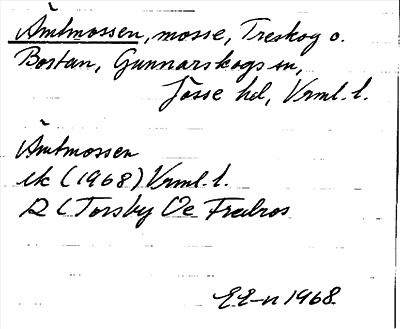 Åmtmossen, mosse, Treskog o.
Bortan, Gunnarskogs sn,
Jösse hd, Vrml. l.
Åmtmossen
ek (1968) Vrml. l.
12 C Torsby Oe Fredros
EE-n 1968